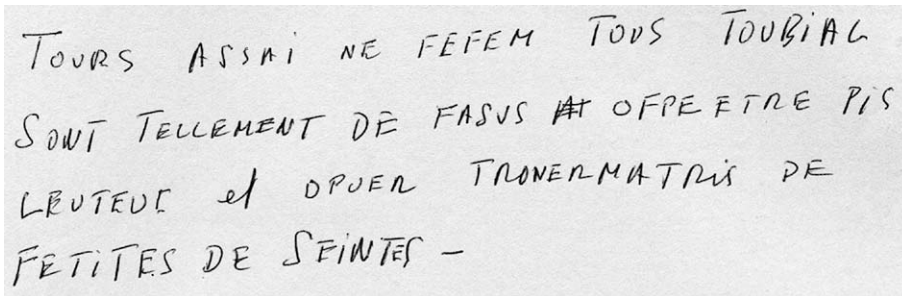 TOURS ASSAI NE FEFEM TOUS TOUBIAL
SONT TELLEMENT DE FASUS OFPE ETRE PIS
LEUTEUR et OPUER TRONERMATRIS DE
FETITES DE SEINTES -